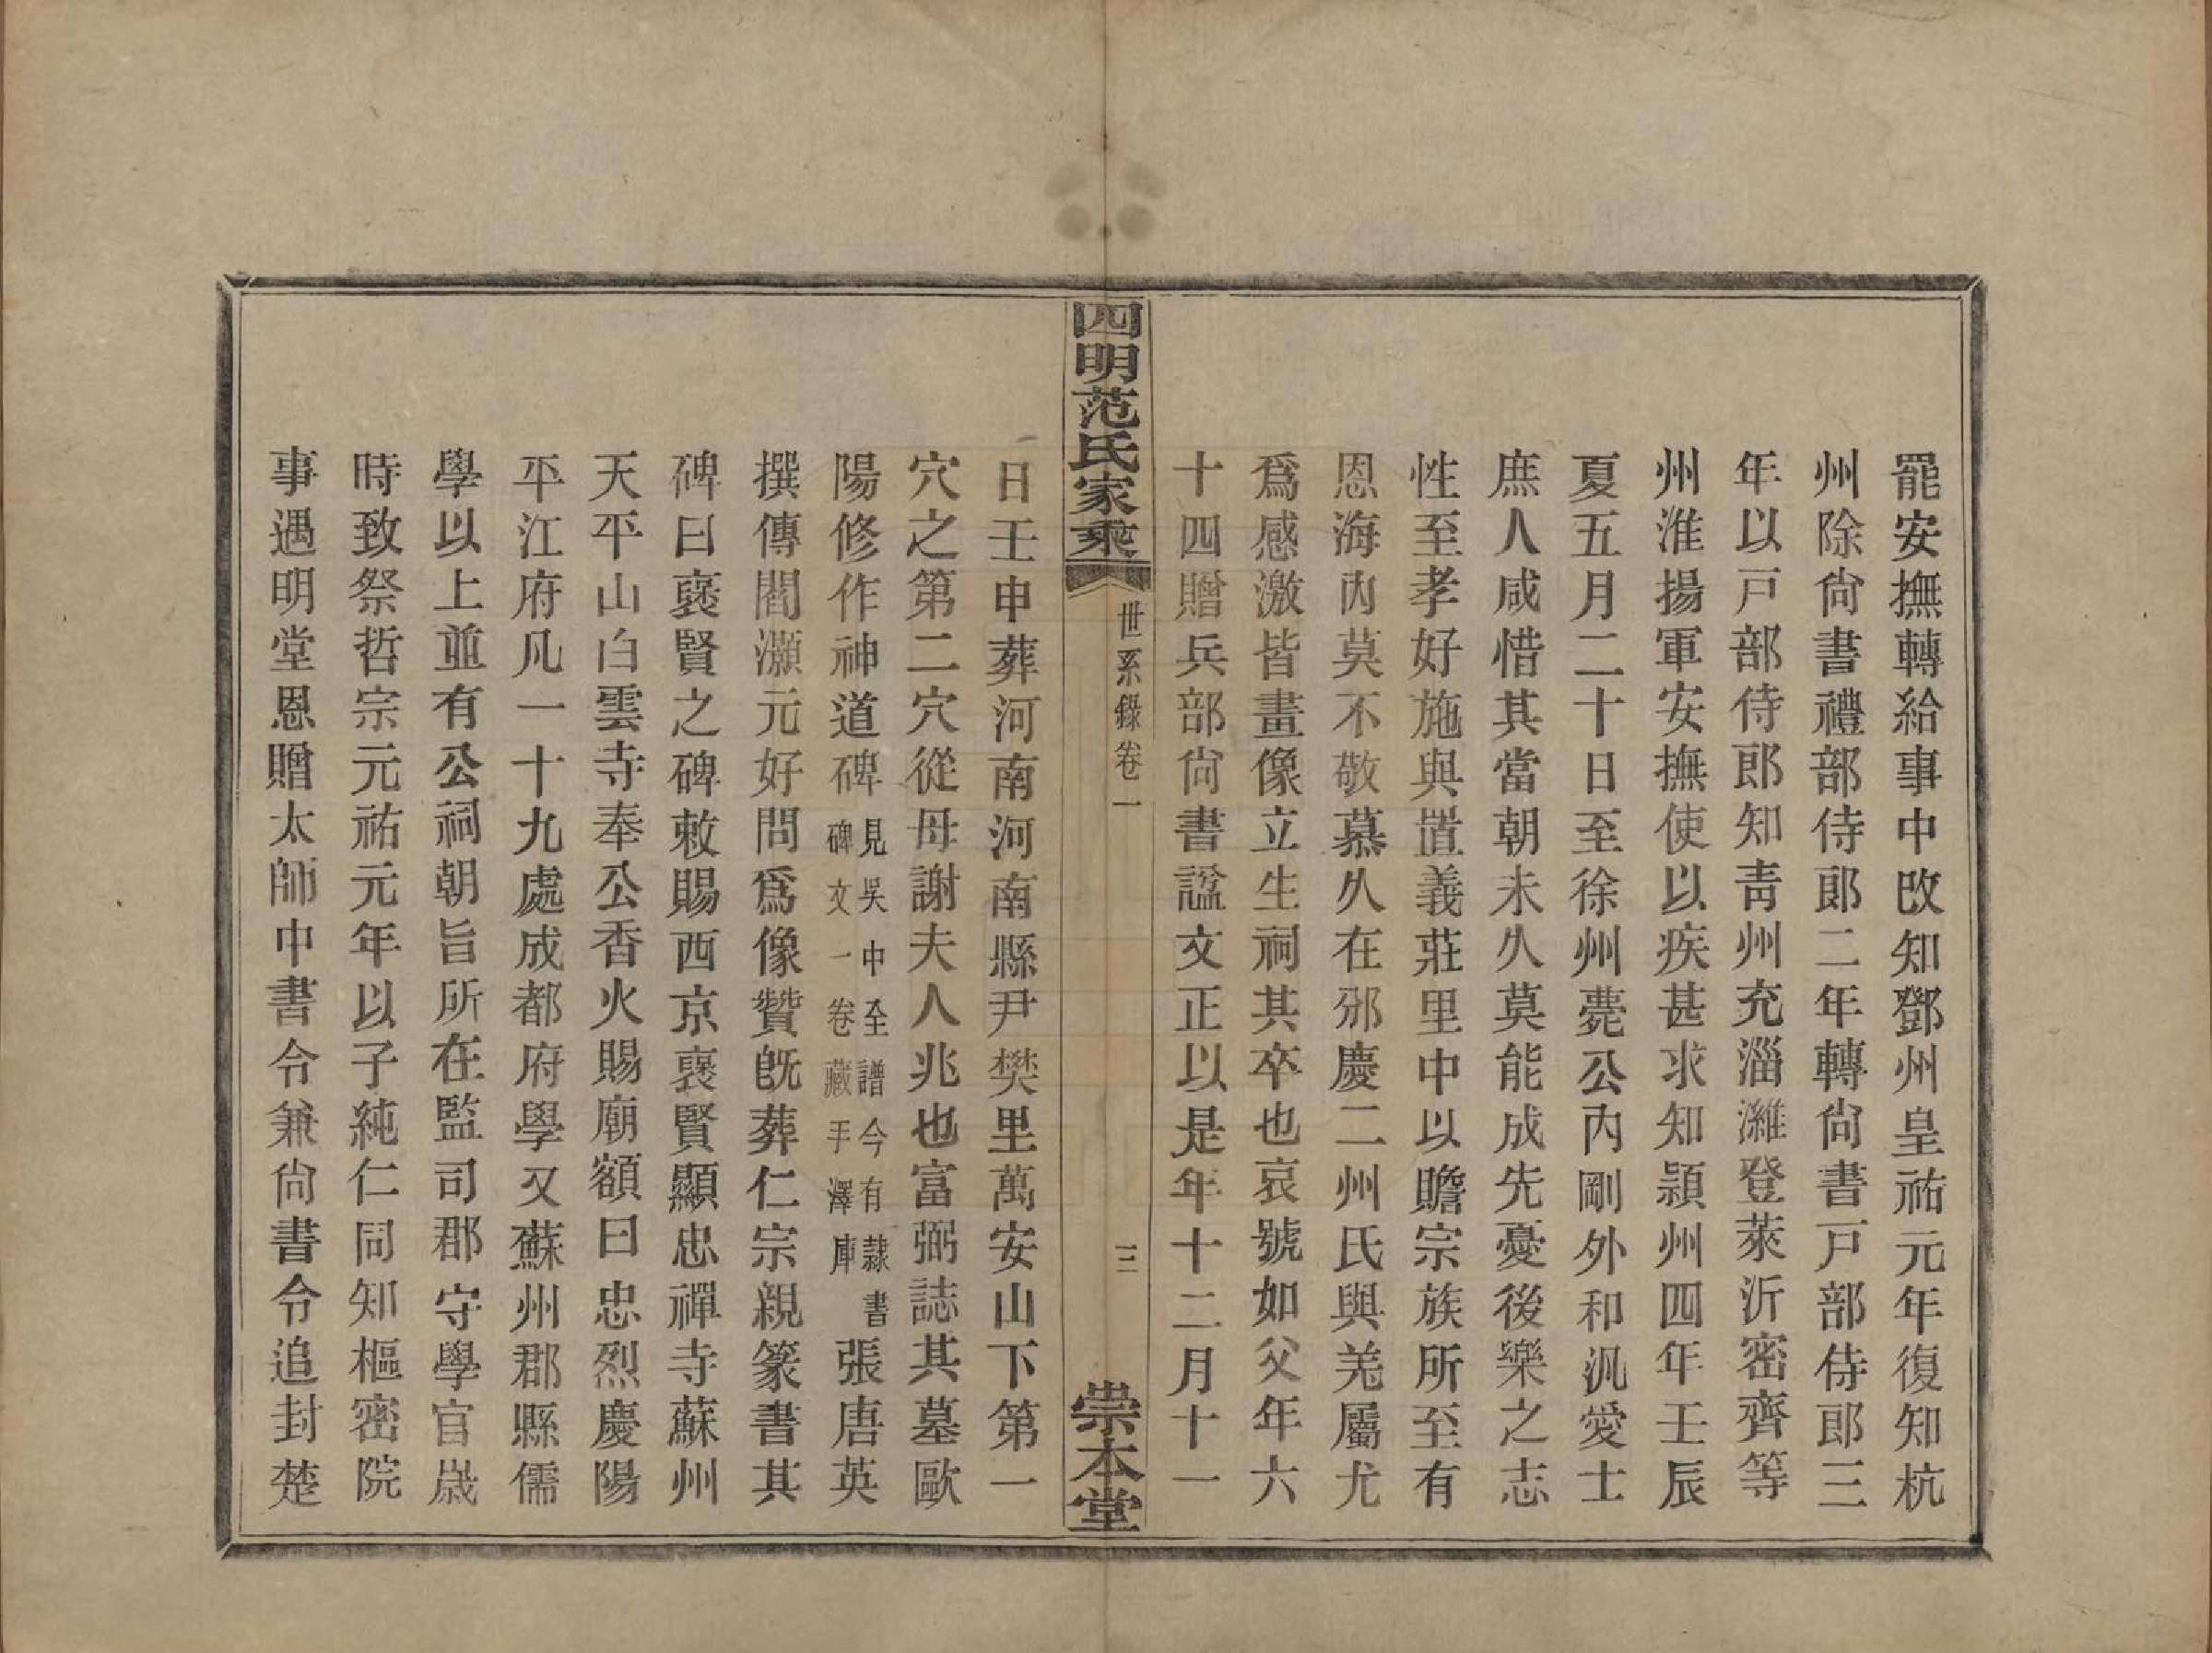 罷安撫轉給事中改知鄧州皇祐元年復知杭
州除尙書禮部侍郞二年轉尙書戸部侍郞三
年以戸部侍郞知靑州充淄濰登萊沂密齊等
州淮揚軍安撫使以疾甚求知潁州四年壬辰
夏五月二十日至徐州薨公內剛外和汎愛士
庶人咸惜其當朝未久莫能成先憂後樂之志
性至孝好施與置義莊里中以贍宗族所至有
恩海內莫不敬慕久在邠慶二州氏與羌屬尤
爲感激皆畫像立生祠其卒也哀號如父年六
十四贈兵部尙書諡文正以是年十二月十一
四明范氏家乘
世系錄卷一
三
崇本堂
日壬申葬河南河南縣尹樊里萬安山下第一
穴之第二穴從母謝夫人兆也富弼誌其墓歐
陽修作神道碑見吳中全譜今有隷書碑文一卷藏手澤庫張唐英
撰傳閻灝元好問爲像贊旣葬仁宗親篆書其
碑曰襃賢之碑敕賜西京襃賢顯忠禪寺蘇州
天平山白雲寺奉公香火賜廟額曰忠烈慶陽
平江府凡一十九處成都府學又蘇州郡縣儒
學以上並有公祠朝旨所在監司郡守學官歲
時致祭哲宗元祐元年以子純仁同知樞密院
事遇明堂恩贈太師中書令兼尙書令追封楚